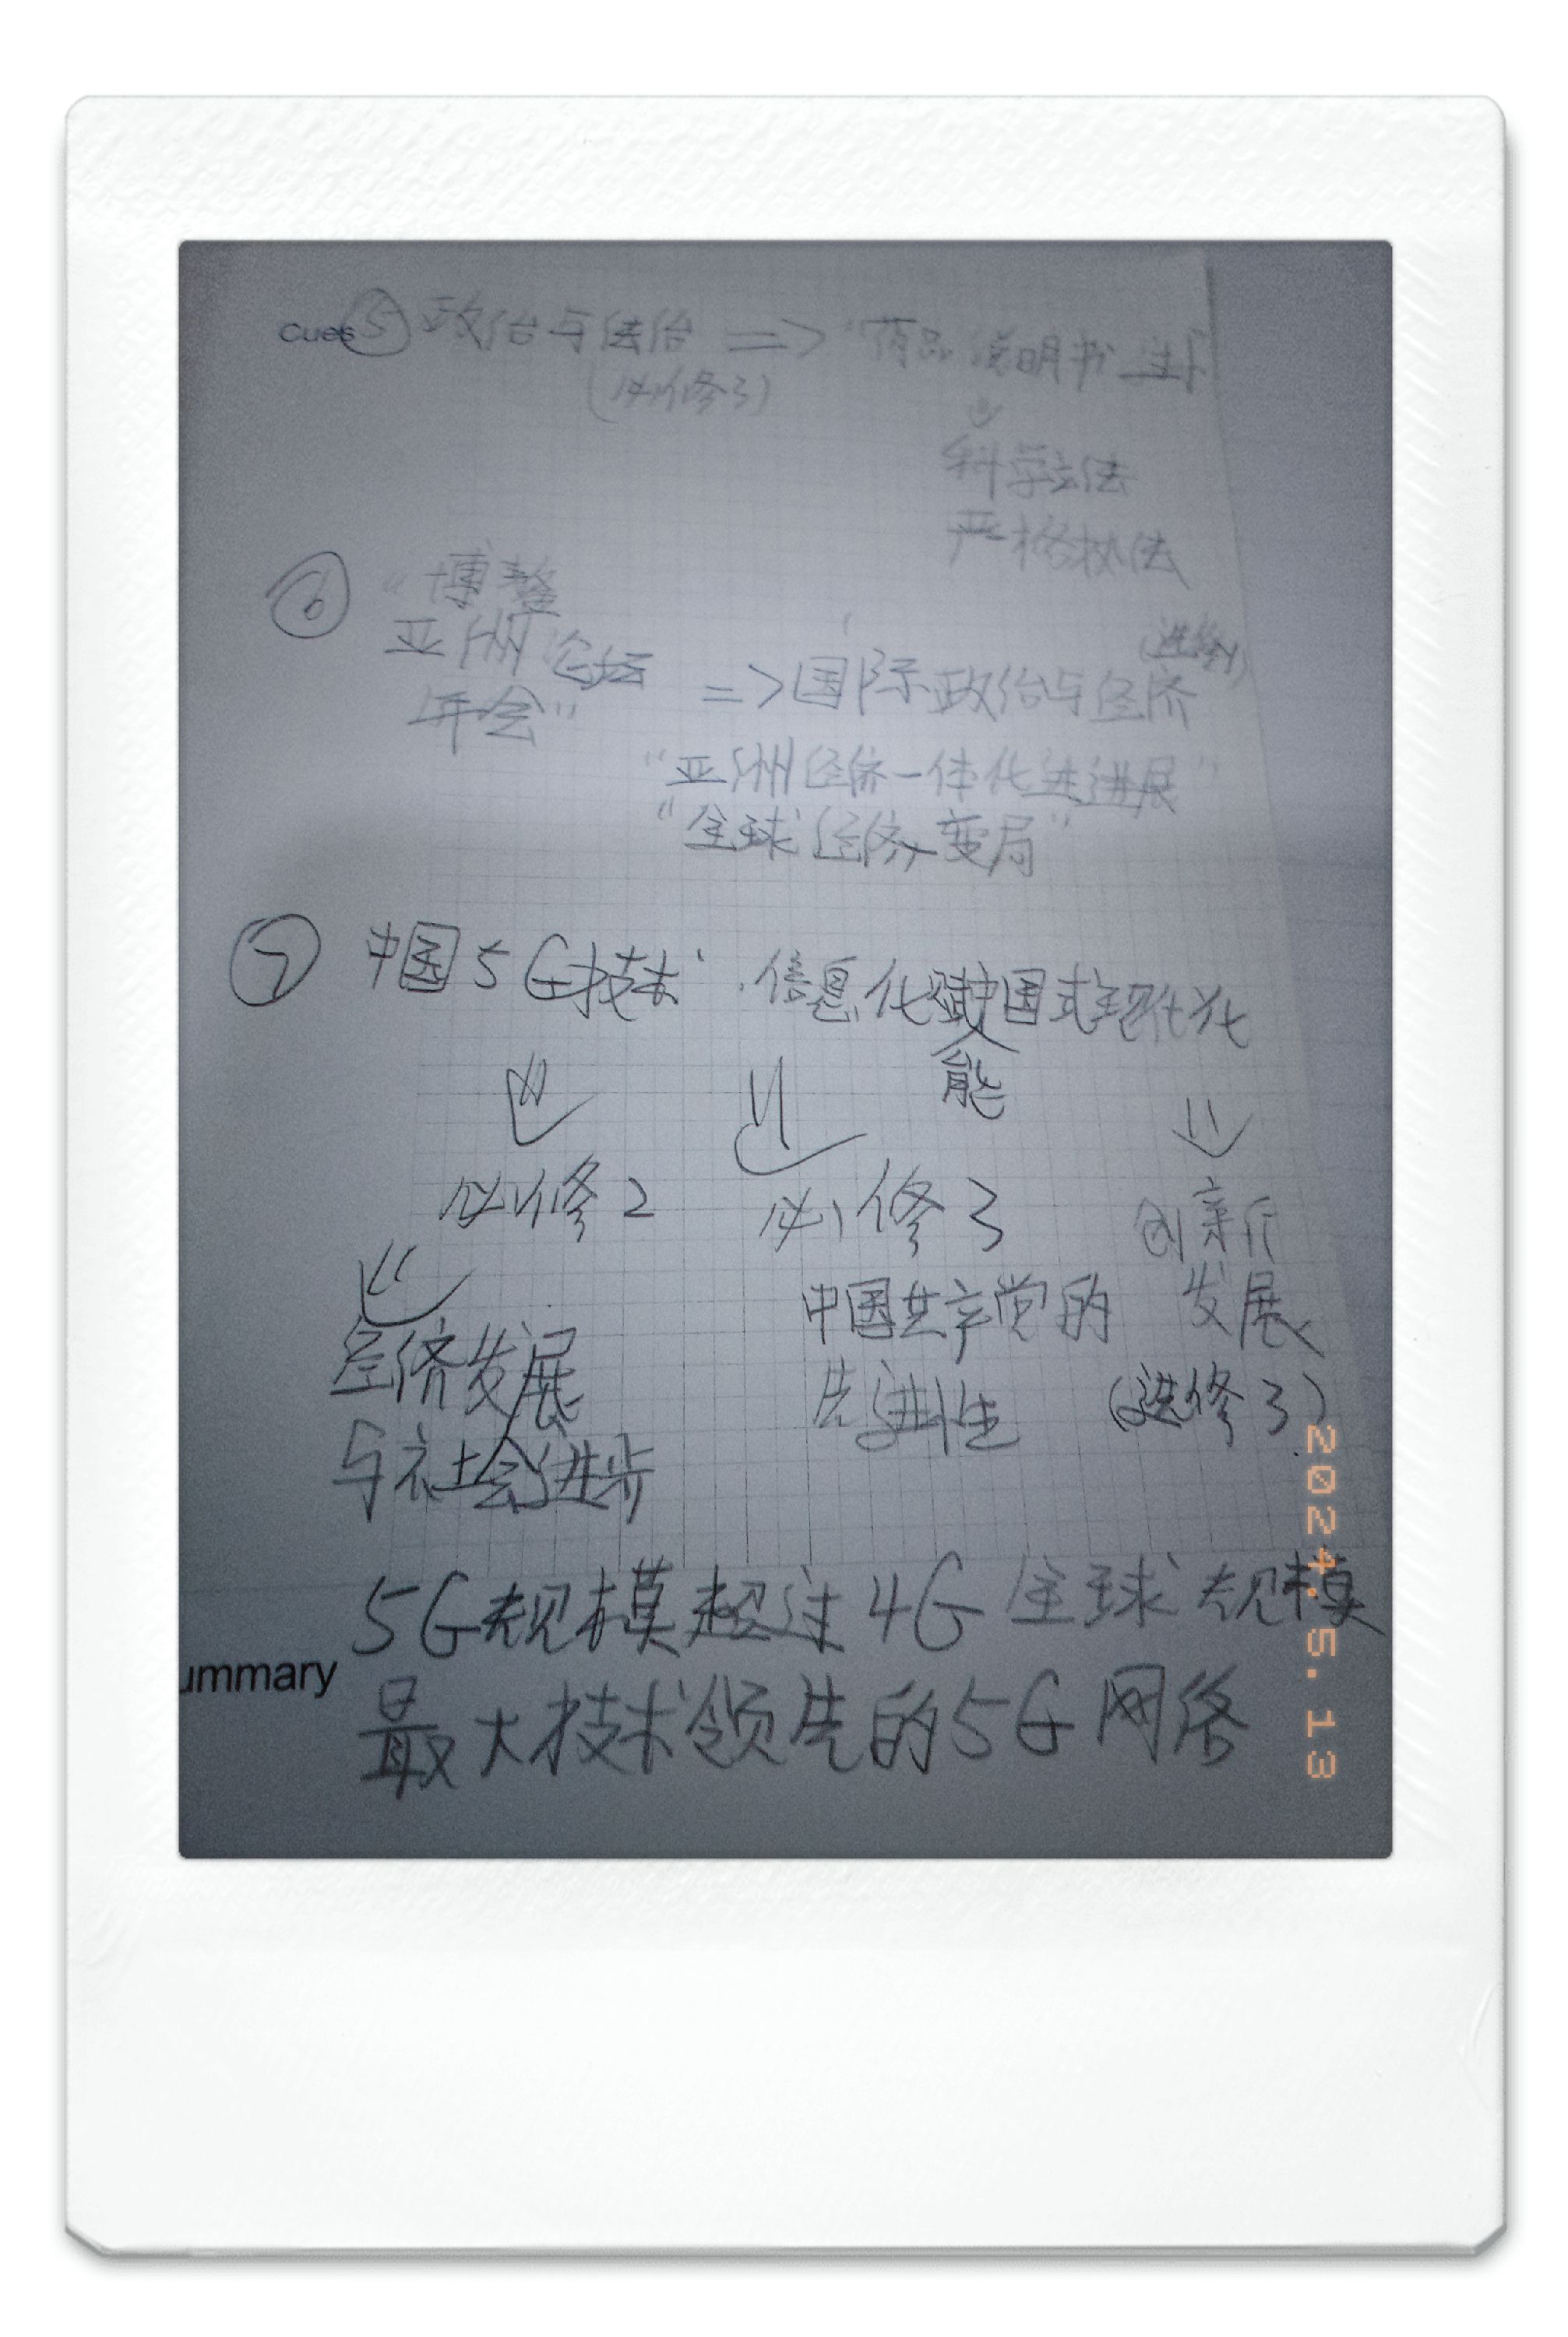 Cues ⑤ 政治与法治 => "药品说明书
(必修3)
科学立法
严格执法
⑥ "博鳌
亚洲论坛
年会"
=> 国际政治与经济
(选修1)
"亚洲经济一体化进展"
"全球经济变局"
⑦ 中国5G技术 · 信息化赋能中国式现代化
必修2 必修3 创新
发展
(选修3)
经济发展
与社会进步
中国共产党的
先进性
5G规模超过4G 全球规模
ummary
最大技术领先的5G网络
2024.5.13